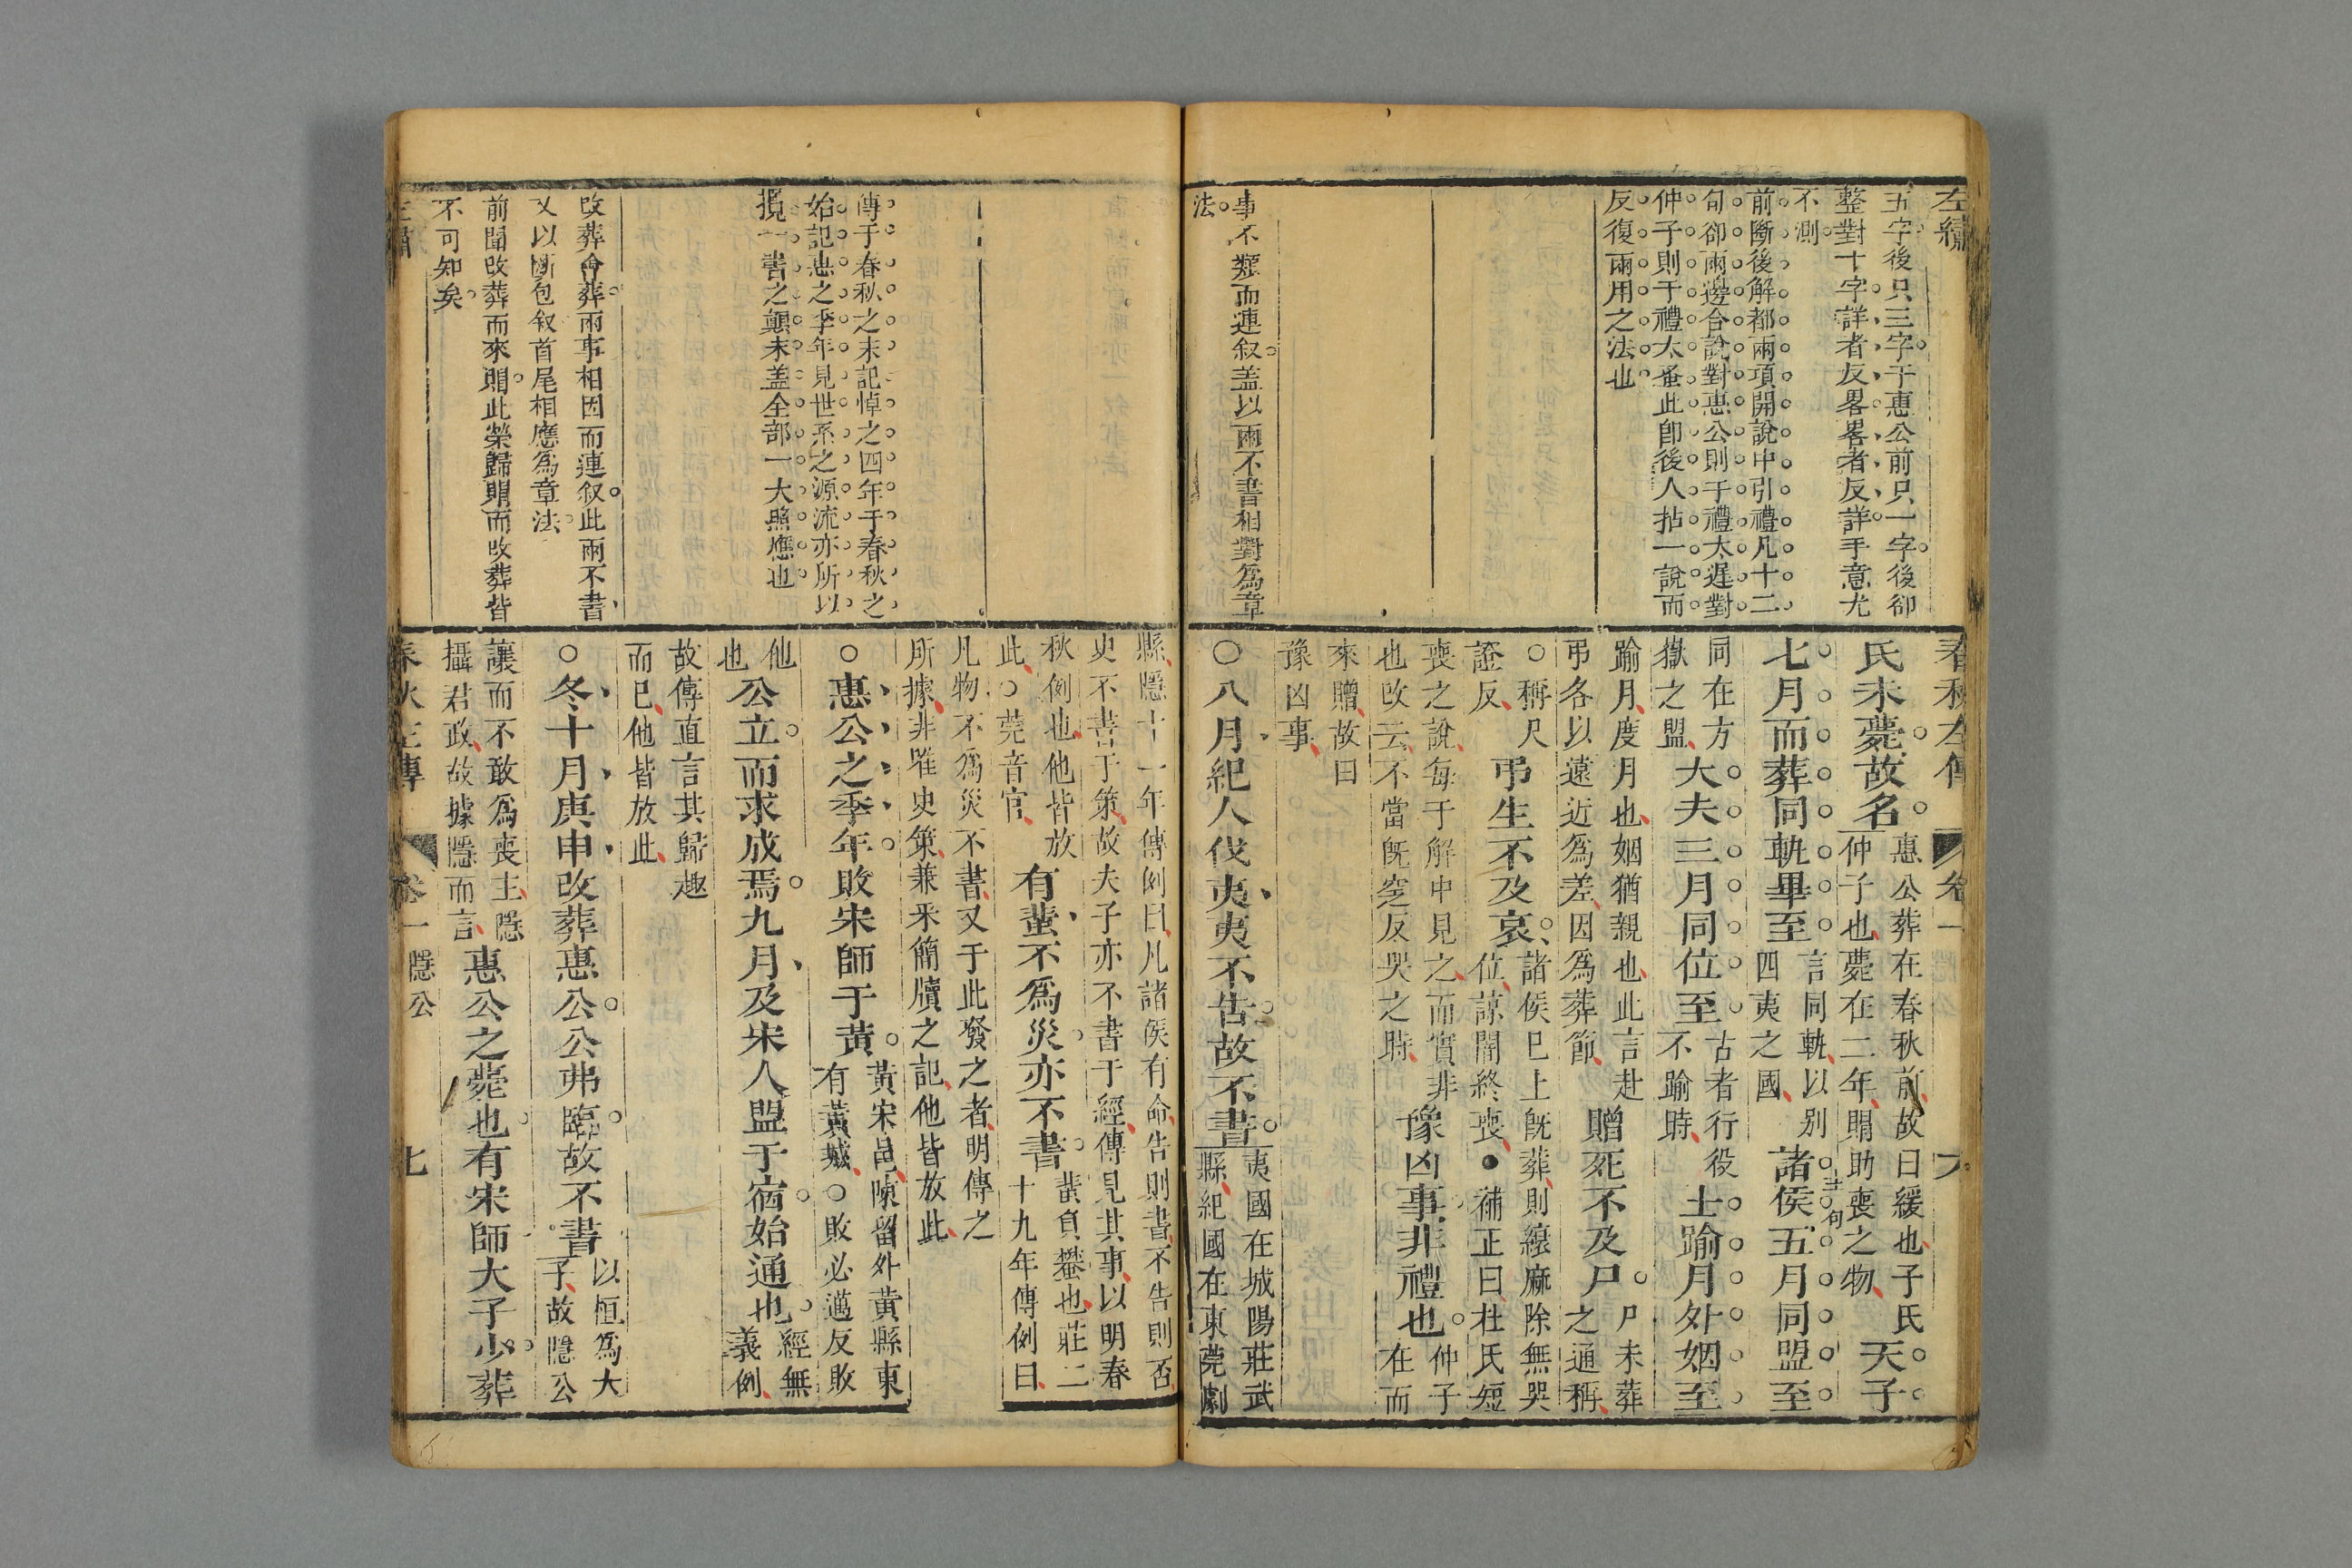 左繡
五字後只三字于惠公前只一字後卻
整對十字詳者反畧畧者反詳手意尤
不測
前斷後解都兩項開說中引禮凡十二
句卻兩邊合說對惠公則于禮太遲對
仲子則于禮太蚤此卽後人拈一說而
反復兩用之法也
事不類而連叙蓋以兩不書相對為章
法
春秋左傳 卷一 六
氏未薨故名
惠公葬在春秋前故曰緩也子氏
仲子也薨在二年賵助喪之物
天子
七月而葬同軌畢至
言同軌以别
四夷之國
諸侯五月同盟至
同在方
嶽之盟
大夫三月同位至
古者行役
不踰時
士踰月外姻至
踰月度月也姻猶親也此言赴
弔各以遠近為差因為葬節
贈死不及尸
尸未葬
之通稱
○稱尺
證反
弔生不及哀
諸侯已上旣葬則縗麻除無哭
位諒闇終喪●補正曰杜氏短
喪之說每于解中見之而實非
也改云不當旣窆反哭之時
豫凶事非禮也
仲子
在而
來贈故曰
豫凶事
○八月紀人伐夷夷不告故不書
夷國在城陽莊武
縣紀國在東莞劇
縣隱十一年傳例曰凡諸侯有命告則書不告則否
史不書于策故夫子亦不書于經傳見其事以明春
秋例也他皆放
此○莞音官
有蜚不為災亦不書
蜚負蠜也莊二
十九年傳例曰
凡物不為災不書又于此發之者明傳之
所據非唯史策兼采簡牘之記他皆放此
○惠公之季年敗宋師于黃
黃宋邑陳留外黃縣東
有黃城○敗必邁反敗
他
也
公立而求成焉九月及宋人盟于宿始通也
經無
義例
故傳直言其歸趣
而已他皆放此
○冬十月庚申改葬惠公公弗臨故不書
以恒為大
子故隱公
讓而不敢為喪主隱
攝君政故據隱而言
惠公之薨也有宋師大子少葬
傳于春秋之末記悼之四年于春秋之
始記惠之季年見世系之源流亦所以
攬一書之顛末蓋全部一大照應也
改葬會葬兩事相因而連叙此兩不書
又以斷包叙首尾相應為章法
前聞改葬而來賵此榮歸賵而改葬皆
不可知矣
左繡
春秋左傳 卷一 隱公 七